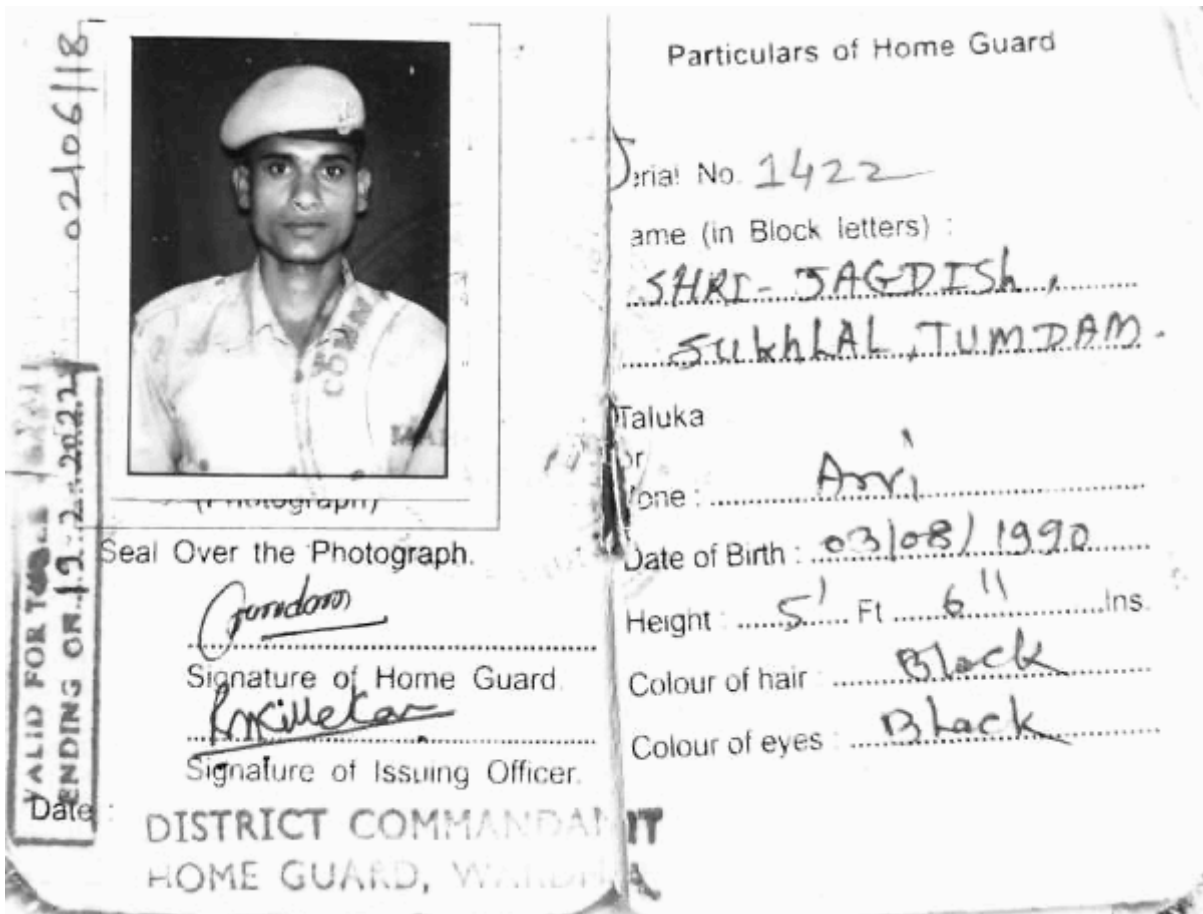 02/06/18
(Photograph)
Seal Over the Photograph.
Signature of Home Guard.
Signature of Issuing Officer.
VALID FOR
ENDING ON 19.2.2022
Date :
DISTRICT COMMANDANT
HOME GUARD, WARDHA
Particulars of Home Guard
erial No. 1422
ame (in Block letters) :
SHRI - JAGDISH,
SUKhLAL, TUMDAM.
Taluka
or
one : Arvi
Date of Birth : 03/08/1990
Height : 5' Ft 6" Ins.
Colour of hair : Black
Colour of eyes : Black